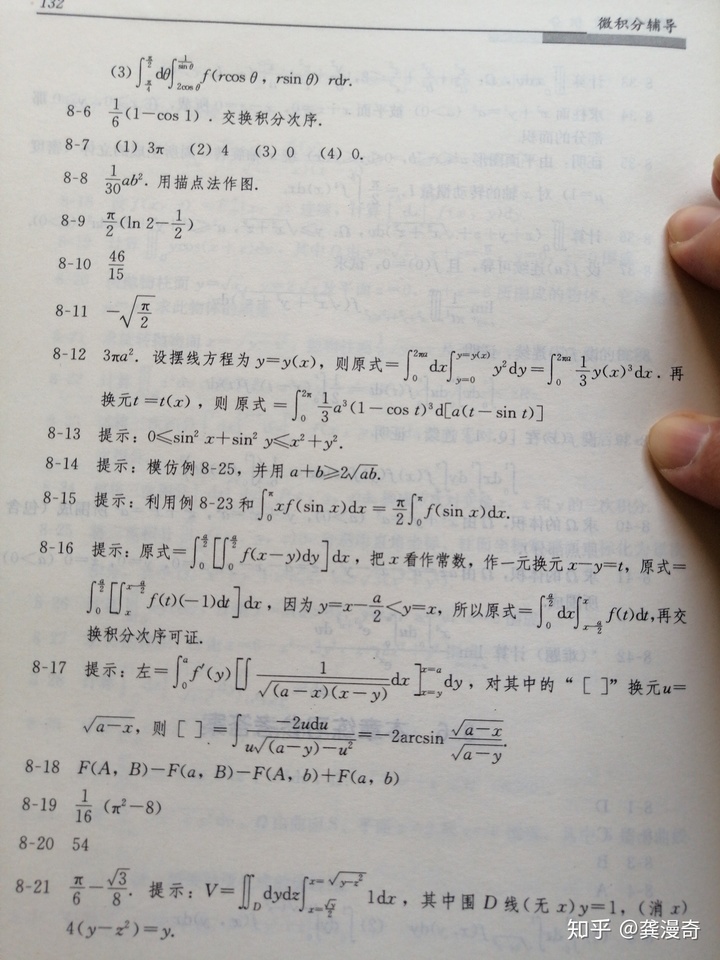 132
微积分辅导
(3) ∫_{π/4}^{π/2} dθ ∫_{2cos θ}^{1/sin θ} f(rcos θ, rsin θ) rdr.
8-6 1/6(1-cos 1). 交换积分次序.
8-7 (1) 3π (2) 4 (3) 0 (4) 0.
8-8 1/30 ab². 用描点法作图.
8-9 π/2(ln 2-1/2)
8-10 46/15
8-11 -√(π/2)
8-12 3πa². 设摆线方程为 y=y(x), 则原式=∫_0^{2πa} dx∫_{y=0}^{y=y(x)} y²dy=∫_0^{2πa} 1/3 y(x)³dx. 再
换元t=t(x), 则原式=∫_0^{2π} 1/3 a³(1-cos t)³d[a(t-sin t)]
8-13 提示: 0≤sin² x+sin² y≤x²+y².
8-14 提示: 模仿例 8-25, 并用 a+b≥2√(ab).
8-15 提示: 利用例 8-23 和∫_0^π xf(sin x)dx = π/2 ∫_0^π f(sin x)dx.
8-16 提示: 原式=∫_0^{a/2} [∫_0^{a/2} f(x-y)dy] dx, 把 x 看作常数, 作一元换元 x-y=t, 原式=
∫_0^{a/2} [∫_x^{x-a/2} f(t)(-1)dt] dx, 因为 y=x-a/2<y=x, 所以原式=∫_0^{a/2} dx∫_{x-a/2}^x f(t)dt, 再交
换积分次序可证.
8-17 提示: 左=∫_0^a f′(y) [∫ 1/√((a-x)(x-y)) dx]_{x=y}^{x=a} dy, 对其中的“[ ]”换元u=
√(a-x), 则 [ ]=∫ -2udu/(u√((a-y)-u²))=-2arcsin √(a-x)/√(a-y).
8-18 F(A, B)-F(a, B)-F(A, b)+F(a, b)
8-19 1/16 (π²-8)
8-20 54
8-21 π/6-√3/8. 提示: V=∬_D dydz∫^{x=√(y-z²)} 1dx, 其中围 D 线(无 x)y=1, (消 x)
4(y-z²)=y.
知乎 @龚漫奇